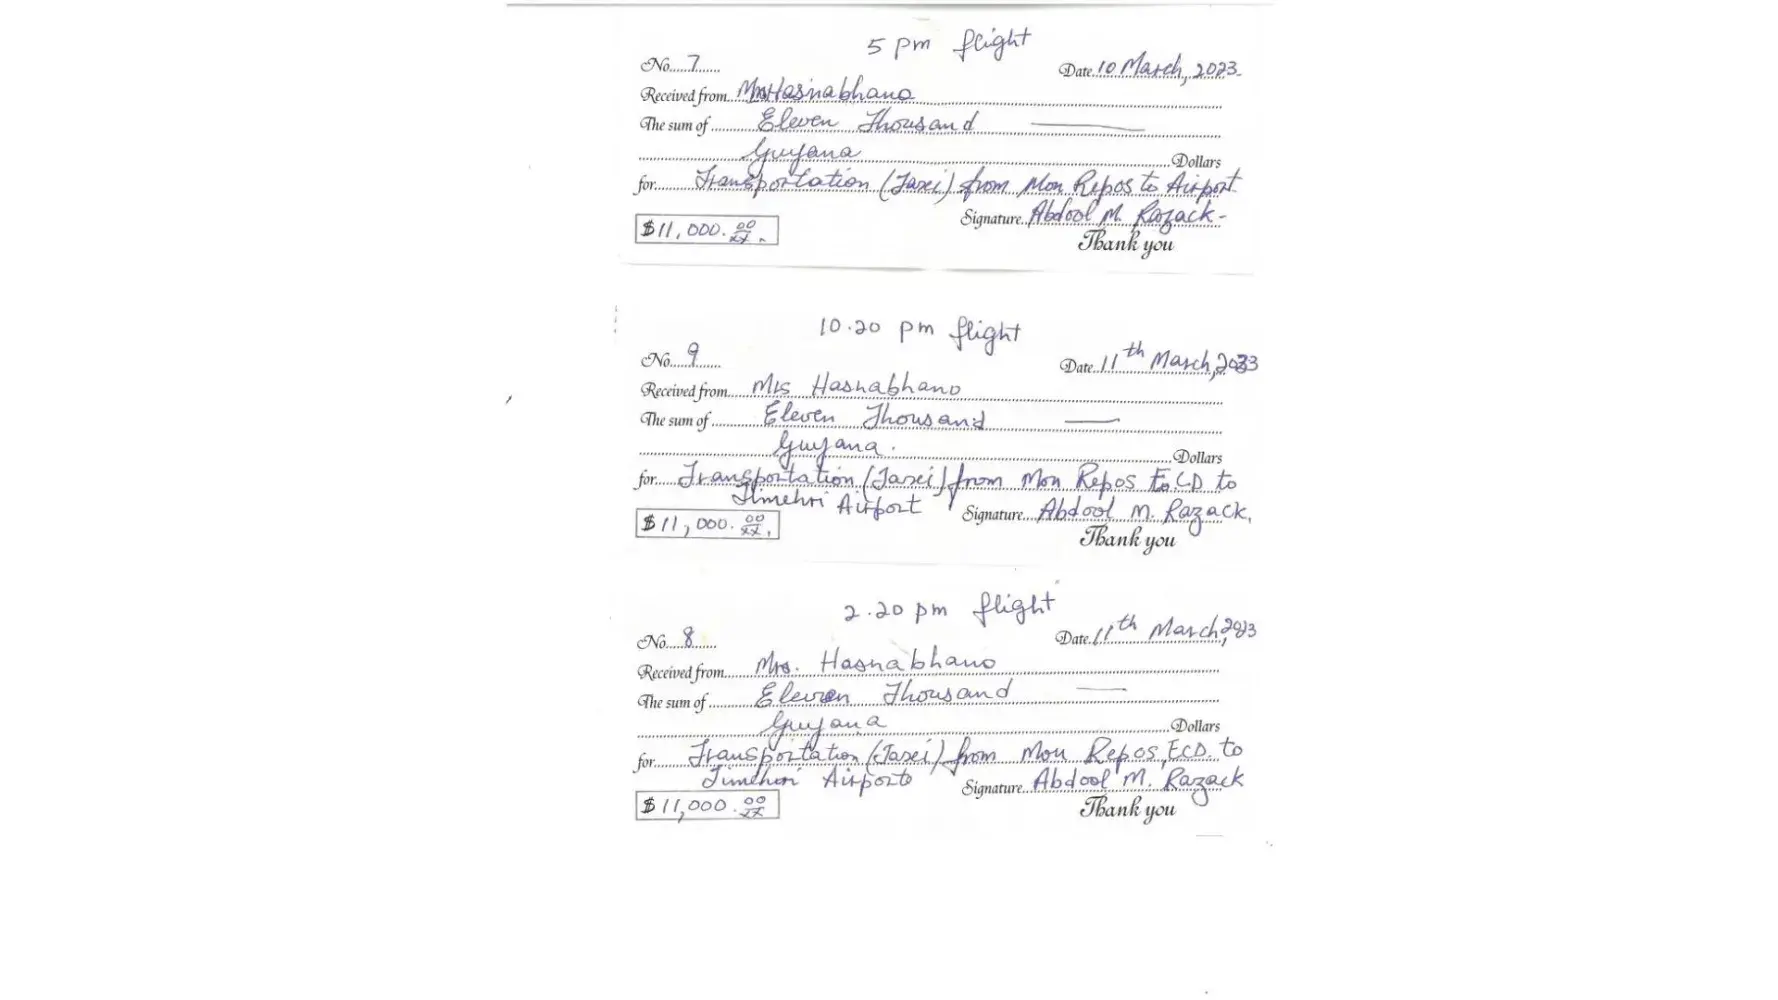 5 pm flight
No. 7
Date 10 March, 2023
Received from Mrs Hasnabhano
The sum of Eleven Thousand
Guyana Dollars
for Transportation (Taxi) from Mon Repos to Airport
Signature Abdool M. Razack
$11,000.00/xx
Thank you
10.20 pm flight
No. 9
Date 11th March, 2023
Received from Mrs Hasnabhano
The sum of Eleven Thousand
Guyana Dollars
for Transportation (Taxi) from Mon Repos E.C.D to
Timehri Airport
Signature Abdool M. Razack
$11,000.00/xx
Thank you
2.20 pm flight
No. 8
Date 11th March, 2023
Received from Mrs. Hasnabhano
The sum of Eleven Thousand
Guyana Dollars
for Transportation (Taxi) from Mon Repos, ECD. to
Timehri Airport
Signature Abdool M. Razack
$11,000.00/xx
Thank you